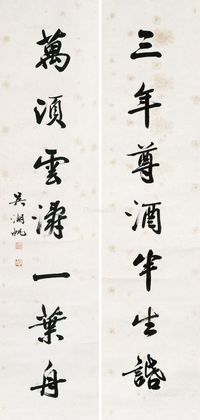 三年尊酒半生諧
萬頃雲濤一葉舟
吳湖帆